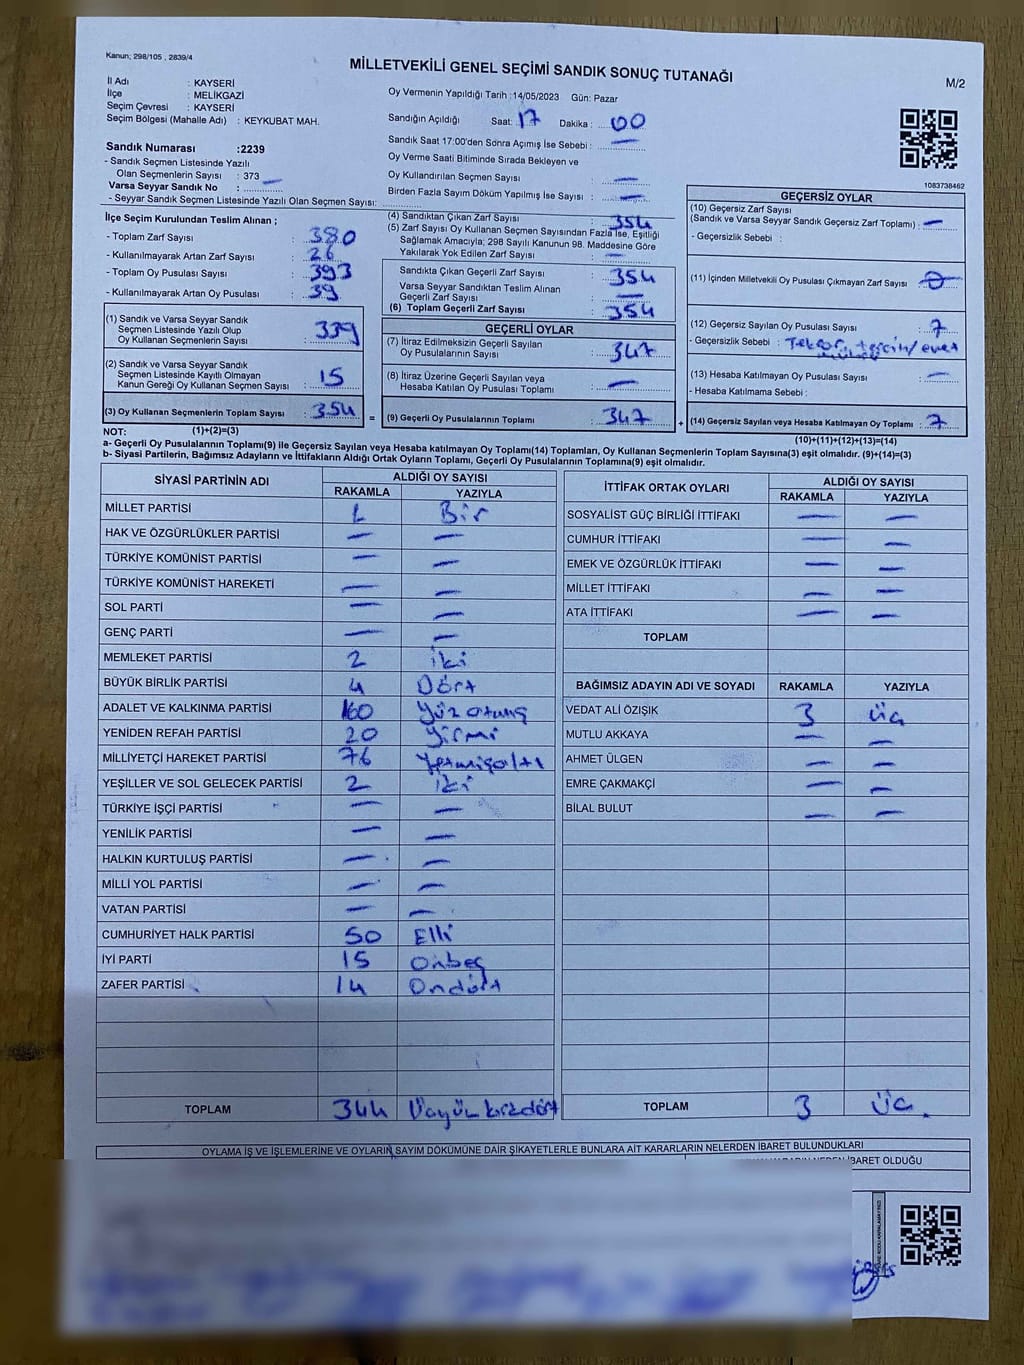 Kanun; 298/105 , 2839/4
MİLLETVEKİLİ GENEL SEÇİMİ SANDIK SONUÇ TUTANAĞI
M/2
İl Adı : KAYSERİ
İlçe : MELİKGAZİ
Seçim Çevresi : KAYSERİ
Seçim Bölgesi (Mahalle Adı) : KEYKUBAT MAH.
Sandık Numarası :2239
- Sandık Seçmen Listesinde Yazılı
Olan Seçmenlerin Sayısı : 373
Varsa Seyyar Sandık No : —
- Seyyar Sandık Seçmen Listesinde Yazılı Olan Seçmen Sayısı:
Oy Vermenin Yapıldığı Tarih :14/05/2023 Gün: Pazar
Sandığın Açıldığı Saat: 17 Dakika : 00
Sandık Saat 17:00'den Sonra Açımış İse Sebebi : —
Oy Verme Saati Bitiminde Sırada Bekleyen ve
Oy Kullandırılan Seçmen Sayısı : —
Birden Fazla Sayım Döküm Yapılmış İse Sayısı : —
1083738462
İlçe Seçim Kurulundan Teslim Alınan ;
- Toplam Zarf Sayısı : 380
- Kullanılmayarak Artan Zarf Sayısı : 26
- Toplam Oy Pusulası Sayısı : 393
- Kullanılmayarak Artan Oy Pusulası : 39
(1) Sandık ve Varsa Seyyar Sandık
Seçmen Listesinde Yazılı Olup
Oy Kullanan Seçmenlerin Sayısı : 339
(2) Sandık ve Varsa Seyyar Sandık
Seçmen Listesinde Kayıtlı Olmayan
Kanun Gereği Oy Kullanan Seçmen Sayısı : 15
(3) Oy Kullanan Seçmenlerin Toplam Sayısı : 354 =
(4) Sandıktan Çıkan Zarf Sayısı : 354
(5) Zarf Sayısı Oy Kullanan Seçmen Sayısından Fazla İse, Eşitliği
Sağlamak Amacıyla; 298 Sayılı Kanunun 98. Maddesine Göre
Yakılarak Yok Edilen Zarf Sayısı : —
Sandıkta Çıkan Geçerli Zarf Sayısı : 354
Varsa Seyyar Sandıktan Teslim Alınan
Geçerli Zarf Sayısı : —
(6) Toplam Geçerli Zarf Sayısı : 354
GEÇERLİ OYLAR
(7) İtiraz Edilmeksizin Geçerli Sayılan
Oy Pusulalarının Sayısı : 347
(8) İtiraz Üzerine Geçerli Sayılan veya
Hesaba Katılan Oy Pusulası Toplamı : —
(9) Geçerli Oy Pusulalarının Toplamı : 347 +
GEÇERSİZ OYLAR
(10) Geçersiz Zarf Sayısı
(Sandık ve Varsa Seyyar Sandık Geçersiz Zarf Toplamı) : —
- Geçersizlik Sebebi :
(11) İçinden Milletvekili Oy Pusulası Çıkmayan Zarf Sayısı : 0
(12) Geçersiz Sayılan Oy Pusulası Sayısı : 7
- Geçersizlik Sebebi :
(13) Hesaba Katılmayan Oy Pusulası Sayısı : —
- Hesaba Katılmama Sebebi :
(14) Geçersiz Sayılan veya Hesaba Katılmayan Oy Toplamı : 7
NOT: (1)+(2)=(3)
(10)+(11)+(12)+(13)=(14)
a- Geçerli Oy Pusulalarının Toplamı(9) ile Geçersiz Sayılan veya Hesaba katılmayan Oy Toplamı(14) Toplamları, Oy Kullanan Seçmenlerin Toplam Sayısına(3) eşit olmalıdır. (9)+(14)=(3)
b- Siyasi Partilerin, Bağımsız Adayların ve İttifakların Aldığı Ortak Oyların Toplamı, Geçerli Oy Pusulalarının Toplamına(9) eşit olmalıdır.
SİYASİ PARTİNİN ADI ALDIĞI OY SAYISI
RAKAMLA YAZIYLA
MİLLET PARTİSİ 1 Bir
HAK VE ÖZGÜRLÜKLER PARTİSİ — —
TÜRKİYE KOMÜNİST PARTİSİ — —
TÜRKİYE KOMÜNİST HAREKETİ — —
SOL PARTİ — —
GENÇ PARTİ — —
MEMLEKET PARTİSİ 2 iki
BÜYÜK BİRLİK PARTİSİ 4 Dört
ADALET VE KALKINMA PARTİSİ 160 Yüz atmış
YENİDEN REFAH PARTİSİ 20 Yirmi
MİLLİYETÇİ HAREKET PARTİSİ 76 Yetmişaltı
YEŞİLLER VE SOL GELECEK PARTİSİ 2 iki
TÜRKİYE İŞÇİ PARTİSİ — —
YENİLİK PARTİSİ — —
HALKIN KURTULUŞ PARTİSİ — —
MİLLİ YOL PARTİSİ — —
VATAN PARTİSİ — —
CUMHURİYET HALK PARTİSİ 50 Elli
İYİ PARTİ 15 Onbeş
ZAFER PARTİSİ 14 Ondört
TOPLAM 344 Üçyüz kırkdört
İTTİFAK ORTAK OYLARI ALDIĞI OY SAYISI
RAKAMLA YAZIYLA
SOSYALİST GÜÇ BİRLİĞİ İTTİFAKI — —
CUMHUR İTTİFAKI — —
EMEK VE ÖZGÜRLÜK İTTİFAKI — —
MİLLET İTTİFAKI — —
ATA İTTİFAKI — —
TOPLAM
BAĞIMSIZ ADAYIN ADI VE SOYADI RAKAMLA YAZIYLA
VEDAT ALİ ÖZIŞIK 3 üç
MUTLU AKKAYA — —
AHMET ÜLGEN — —
EMRE ÇAKMAKÇİ — —
BİLAL BULUT — —
TOPLAM 3 üç.
OYLAMA İŞ VE İŞLEMLERİNE VE OYLARIN SAYIM DÖKÜMÜNE DAİR ŞİKAYETLERLE BUNLARA AİT KARARLARIN NELERDEN İBARET BULUNDUKLARI
İBARET OLDUĞU